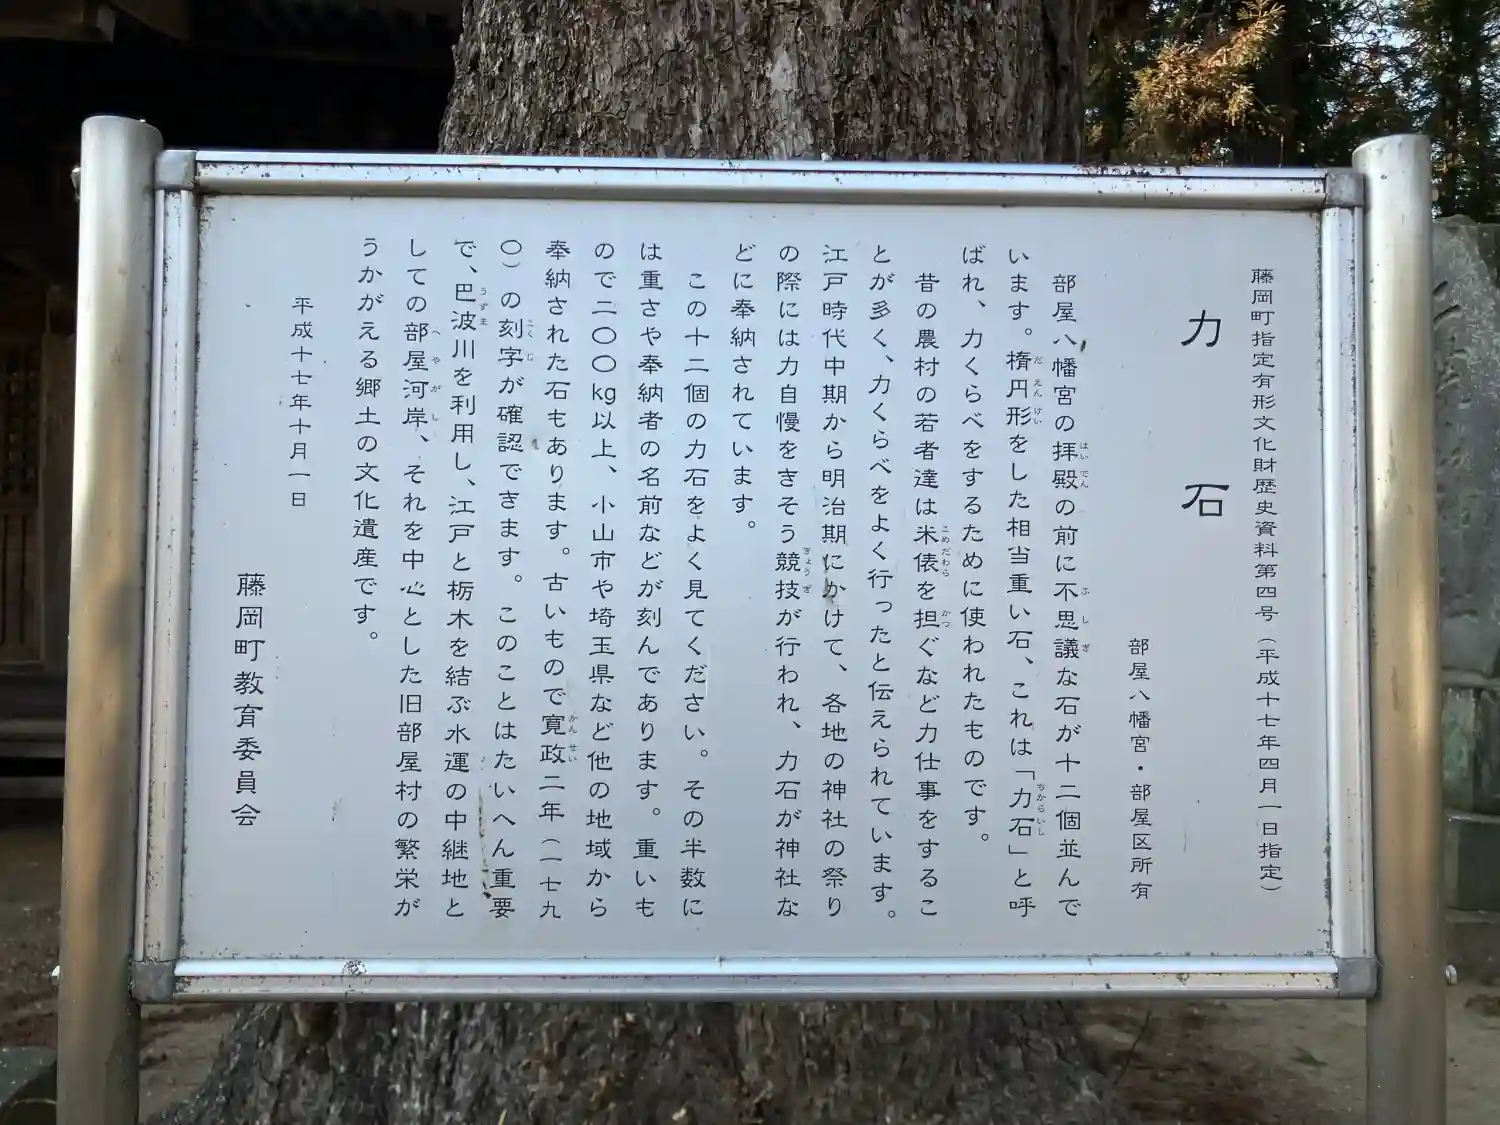 藤岡町指定有形文化財歴史資料第四号（平成十七年四月一日指定）
力石
部屋八幡宮・部屋区所有
部屋八幡宮の拝殿の前に不思議な石が十二個並んで
います。楕円形をした相当重い石、これは「力石」と呼
ばれ、力くらべをするために使われたものです。
昔の農村の若者達は米俵を担ぐなど力仕事をするこ
とが多く、力くらべをよく行ったと伝えられています。
江戸時代中期から明治期にかけて、各地の神社の祭り
の際には力自慢をきそう競技が行われ、力石が神社な
どに奉納されています。
この十二個の力石をよく見てください。その半数に
は重さや奉納者の名前などが刻んであります。重いも
ので二〇〇kg以上、小山市や埼玉県など他の地域から
奉納された石もあります。古いもので寛政二年（一七九
〇）の刻字が確認できます。このことはたいへん重要
で、巴波川を利用し、江戸と栃木を結ぶ水運の中継地と
しての部屋河岸、それを中心とした旧部屋村の繁栄が
うかがえる郷土の文化遺産です。
平成十七年十月一日
藤岡町教育委員会